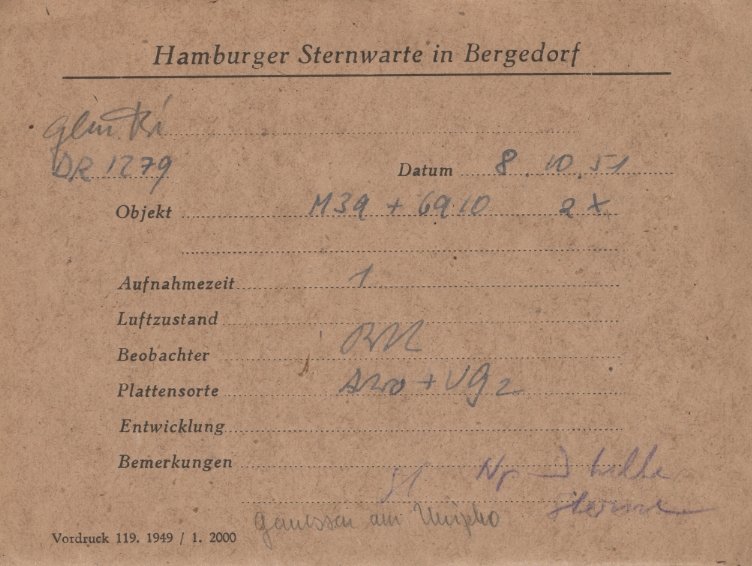 Hamburger Sternwarte in Bergedorf
DR 1279 Datum 8. 10. 51
Objekt M39 + 6910 2 x
Aufnahmezeit 1
Luftzustand
Beobachter
Plattensorte + UG2
Entwicklung
Bemerkungen Np helle
Sterne
gemessen am
Vordruck 119. 1949 / 1. 2000